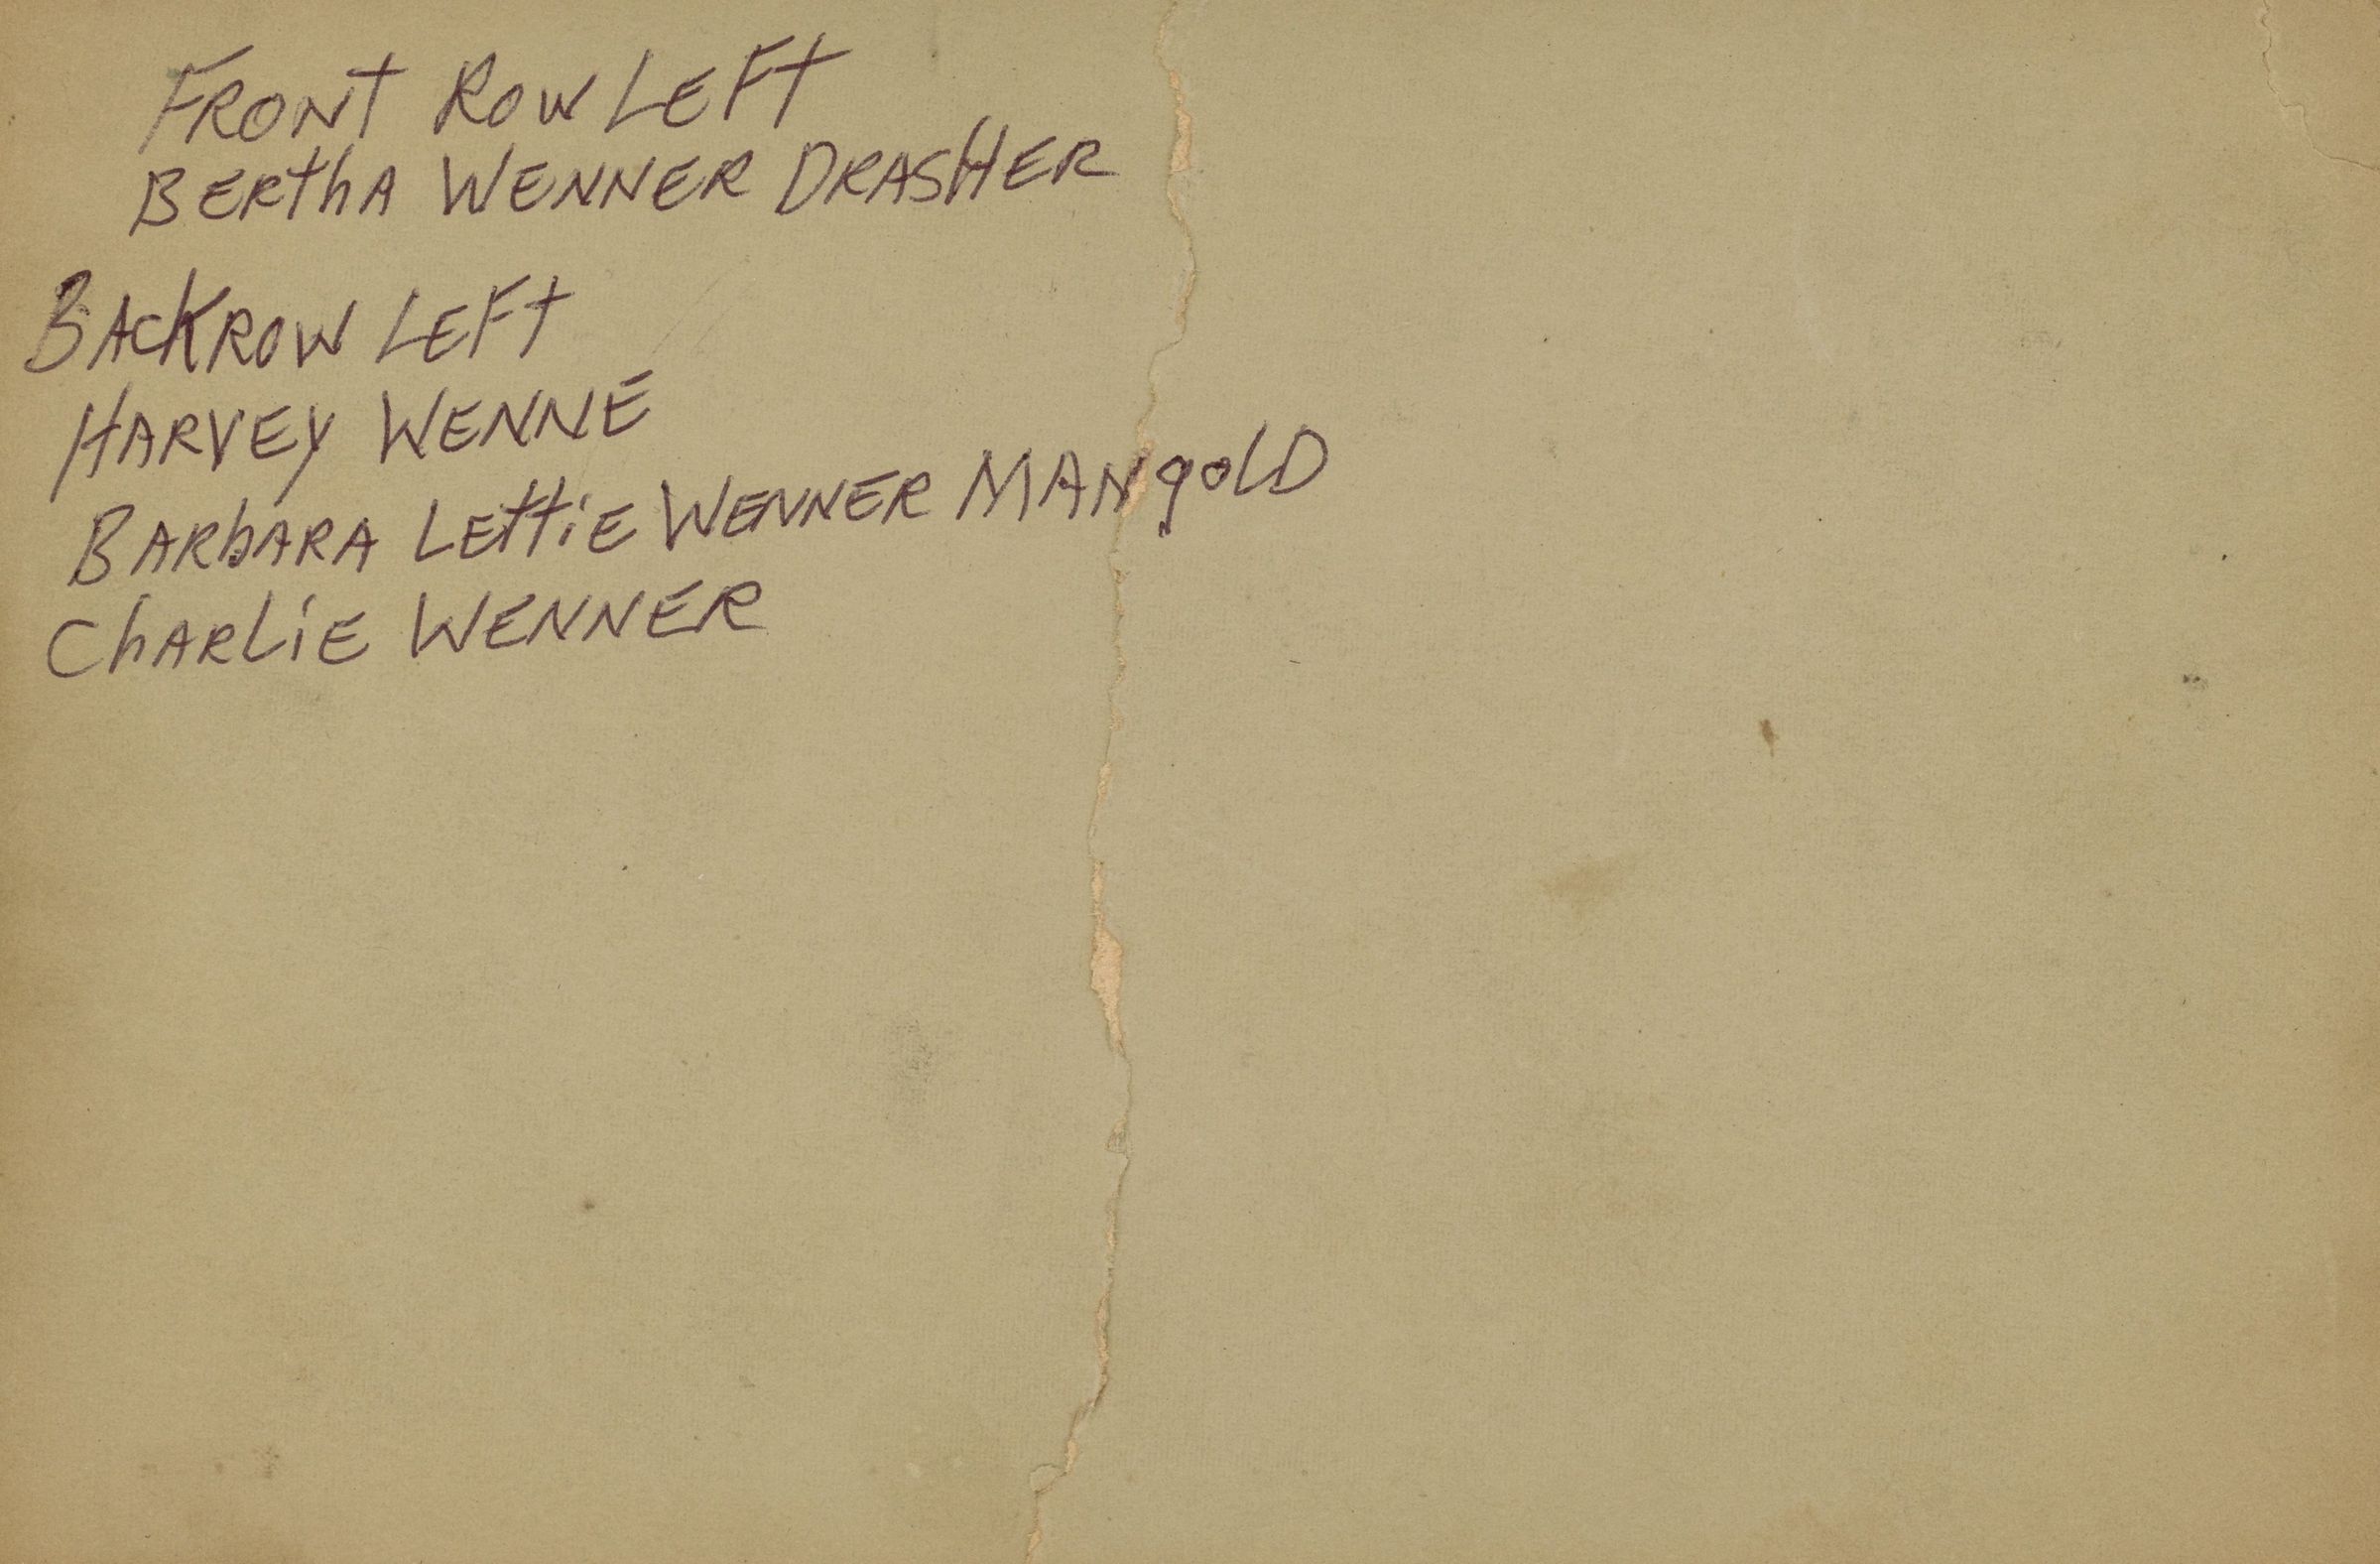 FRONT ROW LEFT
BERthA WENNER DRASHER
BACKROW LEFT
HARVEY WENNE
BARbARA LEttiE WENNER MANgOLD
ChARLiE WENNER